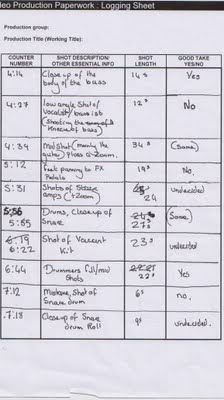 deo Production Paperwork : Logging Sheet
Production group:
Production Title (Working Title):
COUNTER NUMBER SHOT DESCRIPTION/ OTHER ESSENTIAL INFO SHOT LENGTH GOOD TAKE YES/NO
4:14 Close up of the body of the bass 14s Yes
4:27 low angle Shot of Vocalist/bassist (Shooting the
of bass) 12s No
4:34 Mid Shot (mainly the guitar) Have a-Zoom. 34s (Same)
5:12 panning to FX Pedals 19s No,
5:31 Shots of Stage amps (+Zoom) 24 undecided
5:56 5:55 Drums, Close up of Snare 27s (Same)
6:19 6:22 Shot of Vacent Kit 23s undecided
6:44 Drummers full/mid Shots 22s Yes
7:12 Shot of Snare drum 6s no.
7:18 Close up of Snare drum Roll 9s undecided.